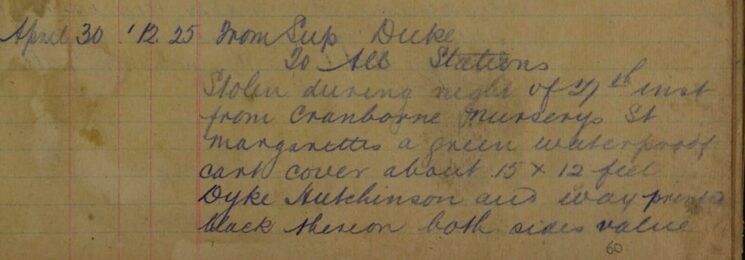 April 30 '12.25 From Sup Duke
To All Stations
Stolen during night of 27th inst
from Cranborne Nurserys St
Margarettes a green waterproof
cart cover about 15 x 12 feet
Dyke Hutchinson and way printed
black thereon both sides value
60